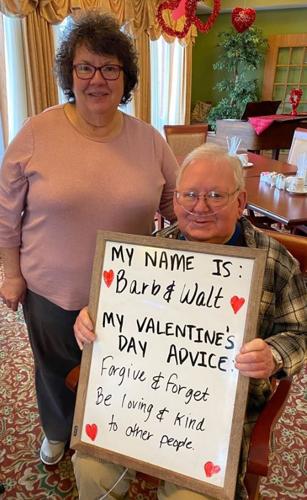 MY NAME IS:
Barb & Walt
MY VALENTINE'S
DAY ADVICE:
Forgive & Forget
Be loving & Kind
to other people.